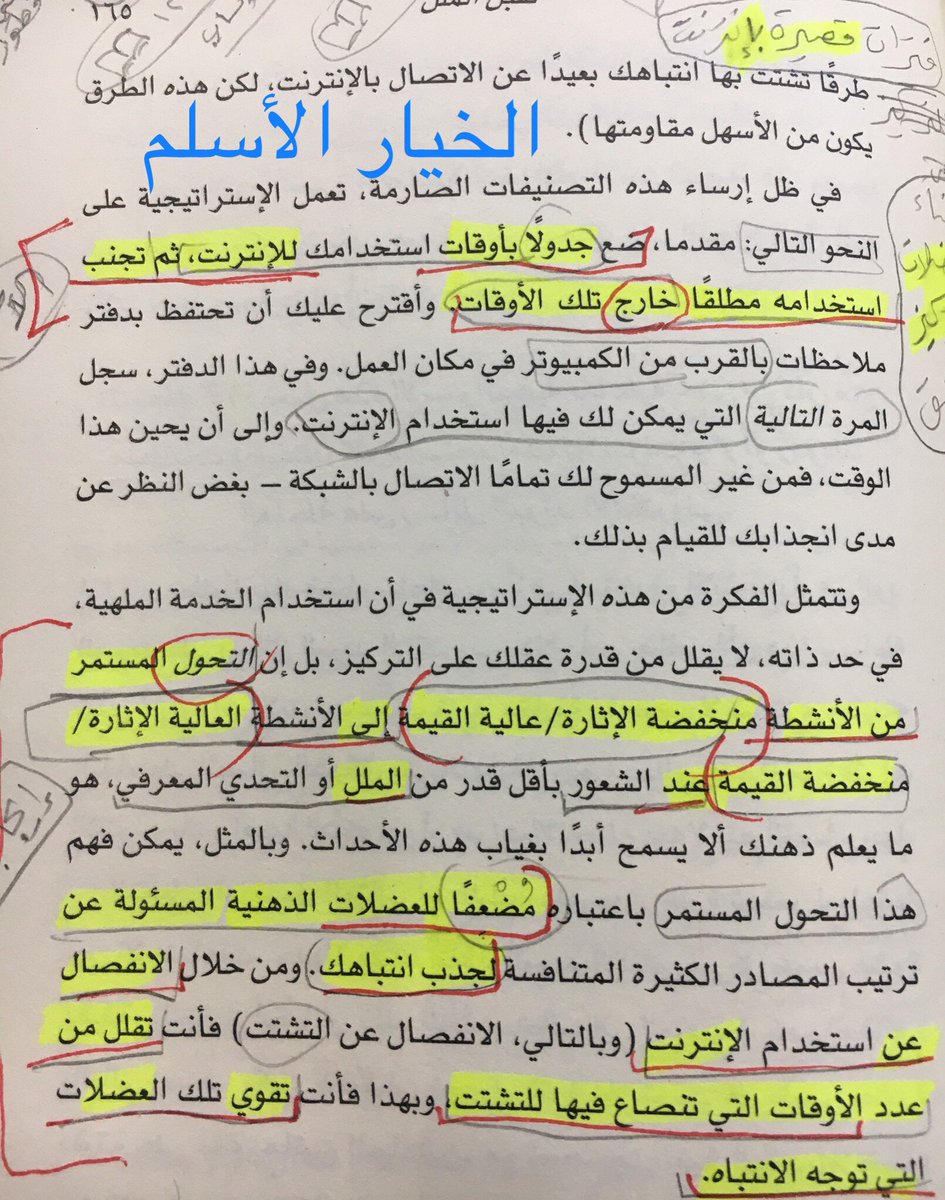 ١٦٥
تقبل الملل
فترات قصيرة بإنترنت
طرقًا تشتت بها انتباهك بعيدًا عن الاتصال بالإنترنت، لكن هذه الطرق
يكون من الأسهل مقاومتها).
الخيار الأسلم
في ظل إرساء هذه التصنيفات الصارمة، تعمل الإستراتيجية على
النحو التالي: مقدما، ضع جدولًا بأوقات استخدامك للإنترنت، ثم تجنب
استخدامه مطلقًا خارج تلك الأوقات. وأقترح عليك أن تحتفظ بدفتر
ملاحظات بالقرب من الكمبيوتر في مكان العمل. وفي هذا الدفتر، سجل
المرة التالية التي يمكن لك فيها استخدام الإنترنت. وإلى أن يحين هذا
الوقت، فمن غير المسموح لك تمامًا الاتصال بالشبكة – بغض النظر عن
مدى انجذابك للقيام بذلك.
وتتمثل الفكرة من هذه الإستراتيجية في أن استخدام الخدمة الملهية،
في حد ذاته، لا يقلل من قدرة عقلك على التركيز، بل إن التحول المستمر
من الأنشطة منخفضة الإثارة/عالية القيمة إلى الأنشطة العالية الإثارة/
منخفضة القيمة عند الشعور بأقل قدر من الملل أو التحدي المعرفي، هو
ما يعلم ذهنك ألا يسمح أبدًا بغياب هذه الأحداث. وبالمثل، يمكن فهم
هذا التحول المستمر باعتباره مُضْعِفًا للعضلات الذهنية المسئولة عن
ترتيب المصادر الكثيرة المتنافسة لجذب انتباهك. ومن خلال الانفصال
عن استخدام الإنترنت (وبالتالي، الانفصال عن التشتت) فأنت تقلل من
عدد الأوقات التي تنصاع فيها للتشتت، وبهذا فأنت تقوي تلك العضلات
التي توجه الانتباه.